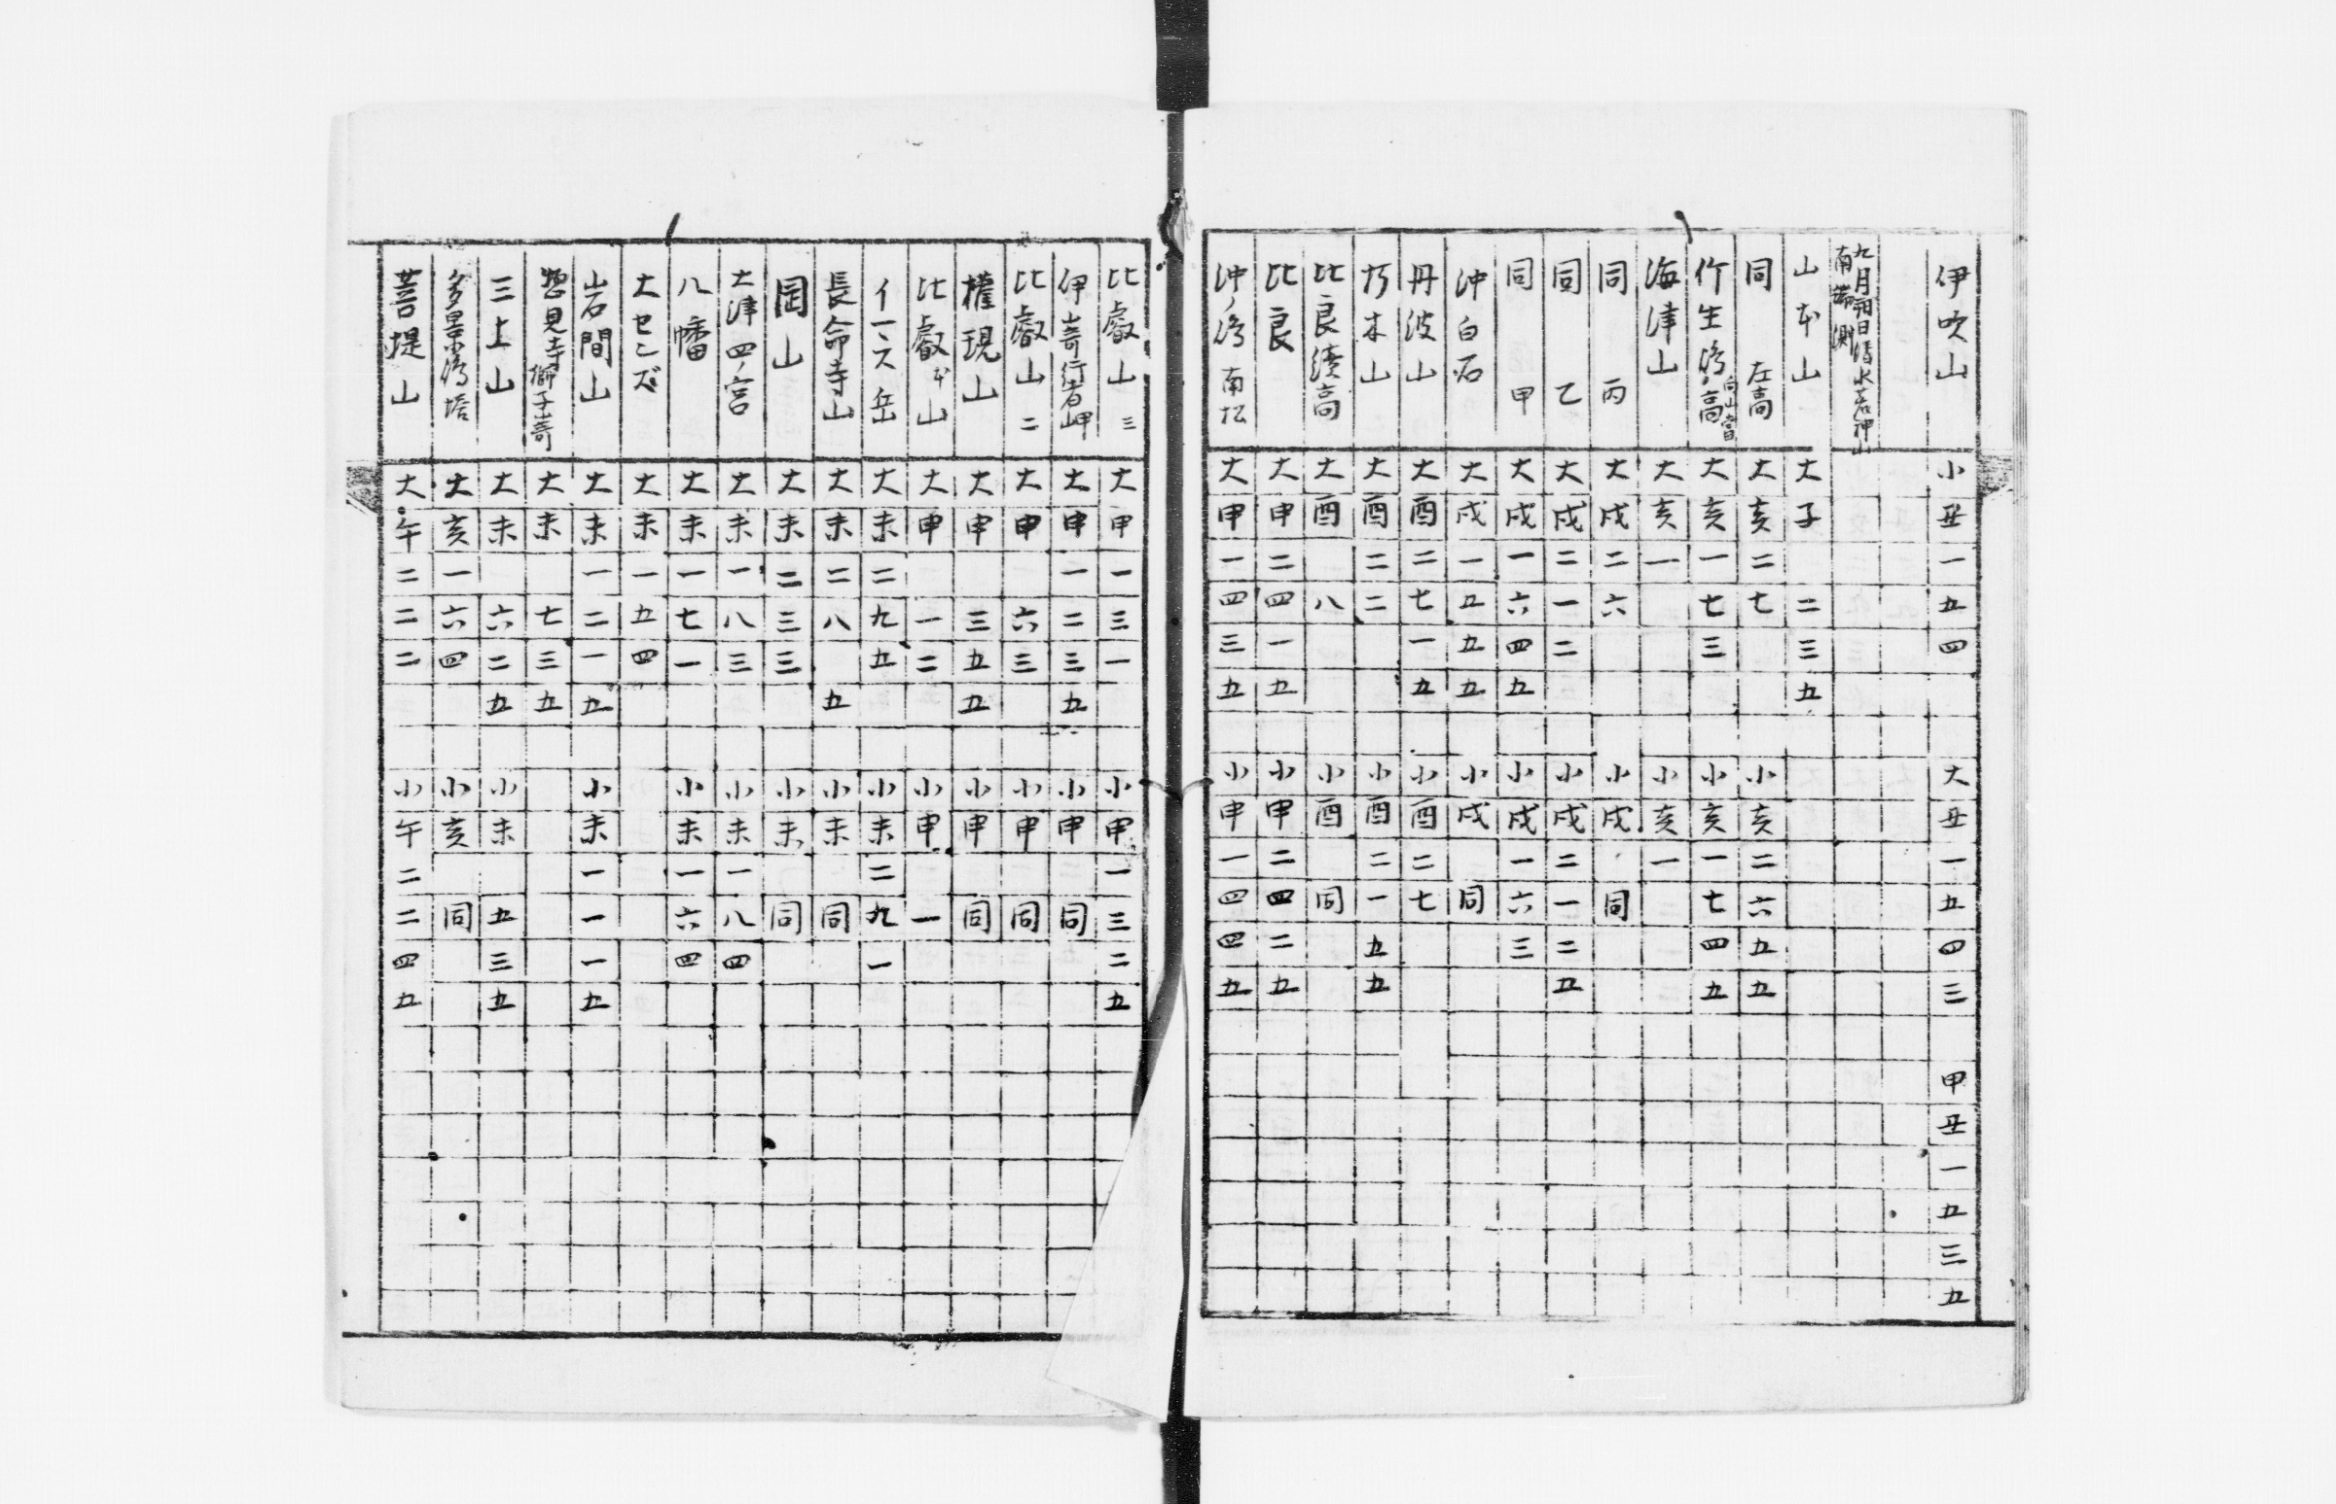 伊吹山 小丑一五四 大丑一五四三 甲丑一五三五
九月朔日 清水若神山
南端測
山本山 大子 二三五
同 左高 大亥二七 小亥二六五五
竹生嶋ノ高 大亥一七三 小亥一七四五
海津山 大亥一 小亥一
同 丙 大戌二六 小戌 同
同 乙 大戌二一二 小戌二一二五
同 甲 大戌一六四五 小戌一六三
沖白石 大戌一五五五 小戌 同
丹波山 大酉二七一五 小酉二七
朽木山 大酉二二 小酉二一五五
比良續高 大酉 八 小酉 同
比良 大申二四一五 小申二四二五
沖ノ嶋 南松 大申一四三五 小申一四四五
比叡山 三 大申一三一 小申一三二五
伊嵜行者岬 大申一二三五 小申 同
比叡山 二 大申 六三 小申 同
權現山 大申 三五五 小申 同
比叡本山 大申 一二 小申 一
大未二九五 小未二九一
長命寺山 大未二八 五 小未 同
岡山 大未二三三 小未 同
大津四ノ宮 大未一八三 小未一八四
八幡 大未一七一 小未一六四
大センズ 大未一五四
岩間山 大未一二一五 小未一一一五
惣見寺獅子嵜 大未 七三五
三上山 大未 六二五 小未 五三五
多景嶋塔 大亥一六四 小亥 同
菩提山 大午二二二 小午二二四五